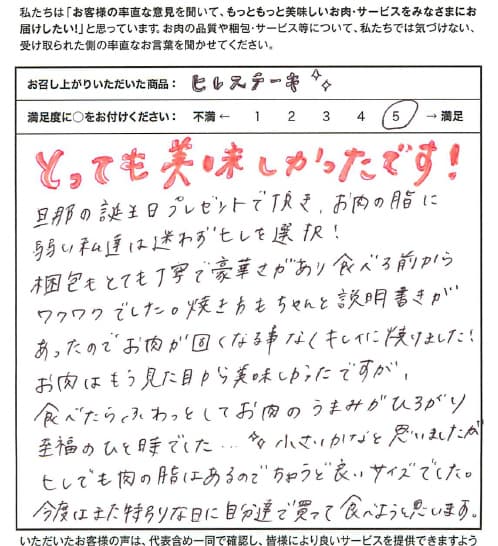 私たちは「お客様の率直な意見を聞いて、もっともっと美味しいお肉・サービスをみなさまにお
届けしたい!」と思っています。お肉の品質や梱包・サービス等について、私たちでは気づけない、
受け取られた側の率直なお言葉を聞かせてください。
お召し上がりいただいた商品： ヒレステーキ
満足度に○をお付けください： 不満 ← 1 2 3 4 5 → 満足
とっても美味しかったです!
旦那の誕生日プレゼントで頂き、お肉の脂に
弱い私達は迷わずヒレを選択!
梱包もとても丁寧で豪華さがあり食べる前から
ワクワクでした。焼き方もちゃんと説明書きが
あったのでお肉が固くなる事なくキレイに焼けました!
お肉はもう見た目から美味しかったですが、
食べたらふわっとしてお肉のうまみがひろがり
至福のひと時でした… 小さいかなと思いましたが
ヒレでも肉の脂はあるのでちょうど良いサイズでした。
今度はまた特別な日に自分達で買って食べようと思います。
いただいたお客様の声は、代表含め一同で確認し、皆様により良いサービスを提供できますよう